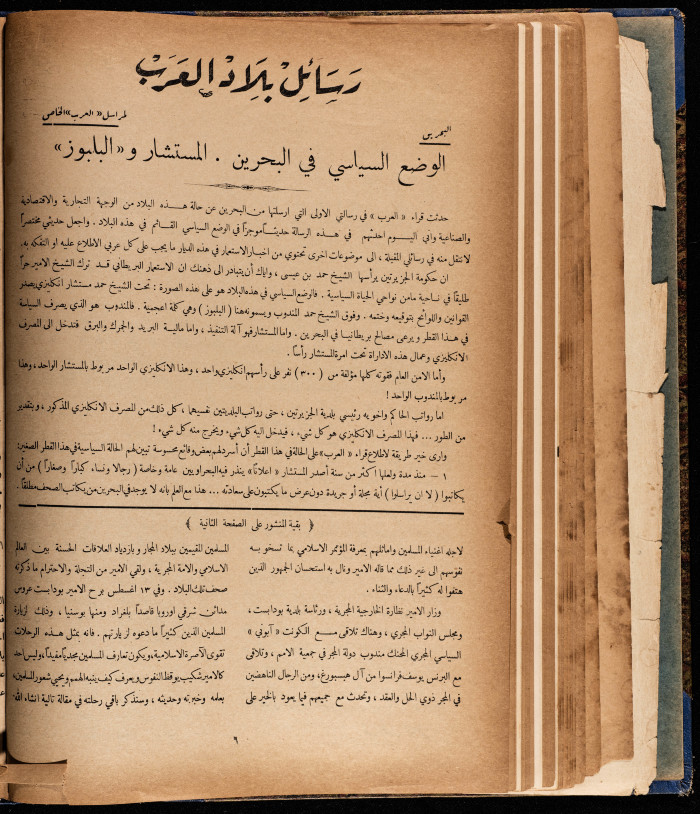 رَسَائِلْ بِلَادْ العَرَبْ
لمراسل « العرب » الخاص
البحرين
الوضع السياسي في البحرين . المستشار و « البلبوز »
حدثت قراء « العرب » في رسالتي الاولى التي ارسلتها من البحرين عن حالة هـذه البلاد من الوجهة التجارية والاقتصادية
والصناعية واني اليـوم احدثهم في هـذه الرسالة حديثـاً موجزاً في الوضع السياسي القـائم في هـذه البلاد . واجعل حديثي مختصراً
لانتقل منه في رسائلي المقبلة ، الى موضوعات اخرى تحتوي من اخبار الاستعمار في هذه الديار ما يجب على كل عربي الاطلاع عليه او التفكه به.
ان حكومة الجزيرتين يرأسها الشيخ حمد بن عيسى ، واياك أن يتبادر الى ذهنك ان الاستعمار البريطاني قـد ترك الشيخ الامير حراً
طليقاً في نـاحية مامن نواحي الحياة السياسية . فالوضع السياسي في هذه البلاد هو على هذه الصورة : تحت الشيخ حمد مستشار انكليزي يصدر
القوانين واللوائح بتوقيعه وختمه . وفوق الشيخ حمد المندوب ويسمونه هنا ( البلبوز ) وهي كلمة اعجمية . فالمندوب هو الذي يصرف السياسة
في هـذا القطر ويرعى مصالح بريطانيـا في البحرين . واما المستشار فهو آلة التنفيذ ، واما مالية البريد والجمرك والبرق فتدخل الى المصرف
الانكليزي وعمال هذه الادارات تحت امرة المستشار رأساً .
وأما الامن العام فقوته كلها مؤلفة من ( ٣٠٠ ) نفر على رأسهم انكليزي واحد ، وهذا الانكليزي الواحد مربوط بالمستشار الواحد، وهذا
مربوط بالمندوب الواحد !
اما رواتب الحاكم واخويه رئيسي بلدية الجزيرتين ، حتى رواتب البلديتين نفسيهما ، كل ذلك من المصرف الانكليزي المذكور ، وبتقدير
من الطور ... فهذا المصرف الانكليزي هو كل شيء ، فيدخل اليه كل شيء ويخرج منه كل شيء !
وارى خير طريقة لاطلاع قراء « العرب » على الحالة في هذا القطر أن أسرد لهم بعض وقائع محسوسة تبين لهم الحالة السياسية في هذا القطر الصغير:
١ – منذ مدة ولعلها اكثر من سنة أصدر المستشار « اعلاناً » ينذر فيه البحراويين عامة وخاصة ( رجالا ونساء كباراً وصغاراً ) من أن
يكاتبوا ( لا ان يراسلوا ) أية مجلة أو جريدة دون عرض ما يكتبون على سعادته ... هذا مع العلم بانه لا يوجد في البحرين من يكاتب الصحف مطلقاً .
﴿ بقية المنشور على الصفحة الثانية ﴾
لاجله اغنياء المسلمين واماثلهم بمعرفة المؤتمر الاسلامي بما تسخو به
نفوسهم الى غير ذلك مما قاله الامير ونال به استحسان الجمهور الذين
هتفوا له كثيراً بالدعاء والثناء .
وزار الامير نظارة الخارجية المجرية ، ورئاسة بلدية بودابست ،
ومجلس النواب المجري ، وهناك تلاقى مـع الكونت « آبوني »
السياسي المجري المحنك مندوب دولة المجر في جمعية الامم ، وتلاقى
مع البرنس يوسف فرانسوا من آل هبسبورغ، ومن الرجال الناهضين
في المجر ذوي الحل والعقد ، وتحدث مع جميعهم فيما يعود بالخير على
المسلمين المقيمين ببلاد المجار وبازدياد العلاقات الحسنة بين العالم
الاسلامي والامة المجرية ، ولقي الامير من التجلة والاحترام ما ذكرته
صحف تلك البلاد . وفي ١٣ اغسطس برح الامير بودابست عروس
مدائن شرقي اوروبا قاصداً بلغراد ومنها بوسنيا ، وذلك لزيارة
المسلمين الذين كثيراً ما دعوه لزيارتهم . فانه بمثل هـذه الرحلات
تقوى الآصرة الاسلامية، ويكون تعارف المسلمين مجدياً مفيداً، وليس احد
كالامير شكيب يوقظ النفوس ويعرف كيف ينبه الهمم ويحيي شعور المسلمين،
بعلمه وخبرته وحديثه ، وسنذكر باقي رحلته في مقالة تالية انشاء الله.
٦